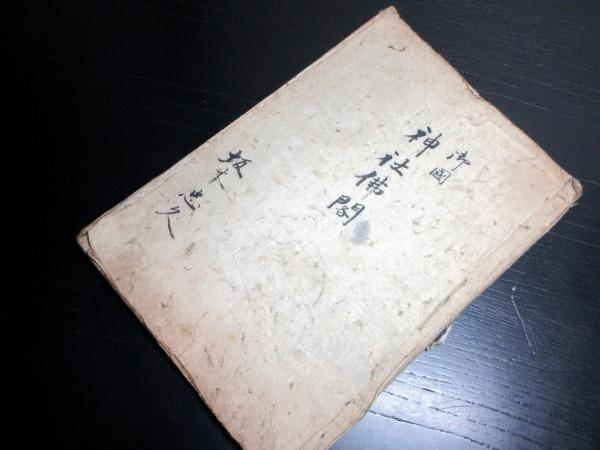 御國
神社佛閣
坂本忠久